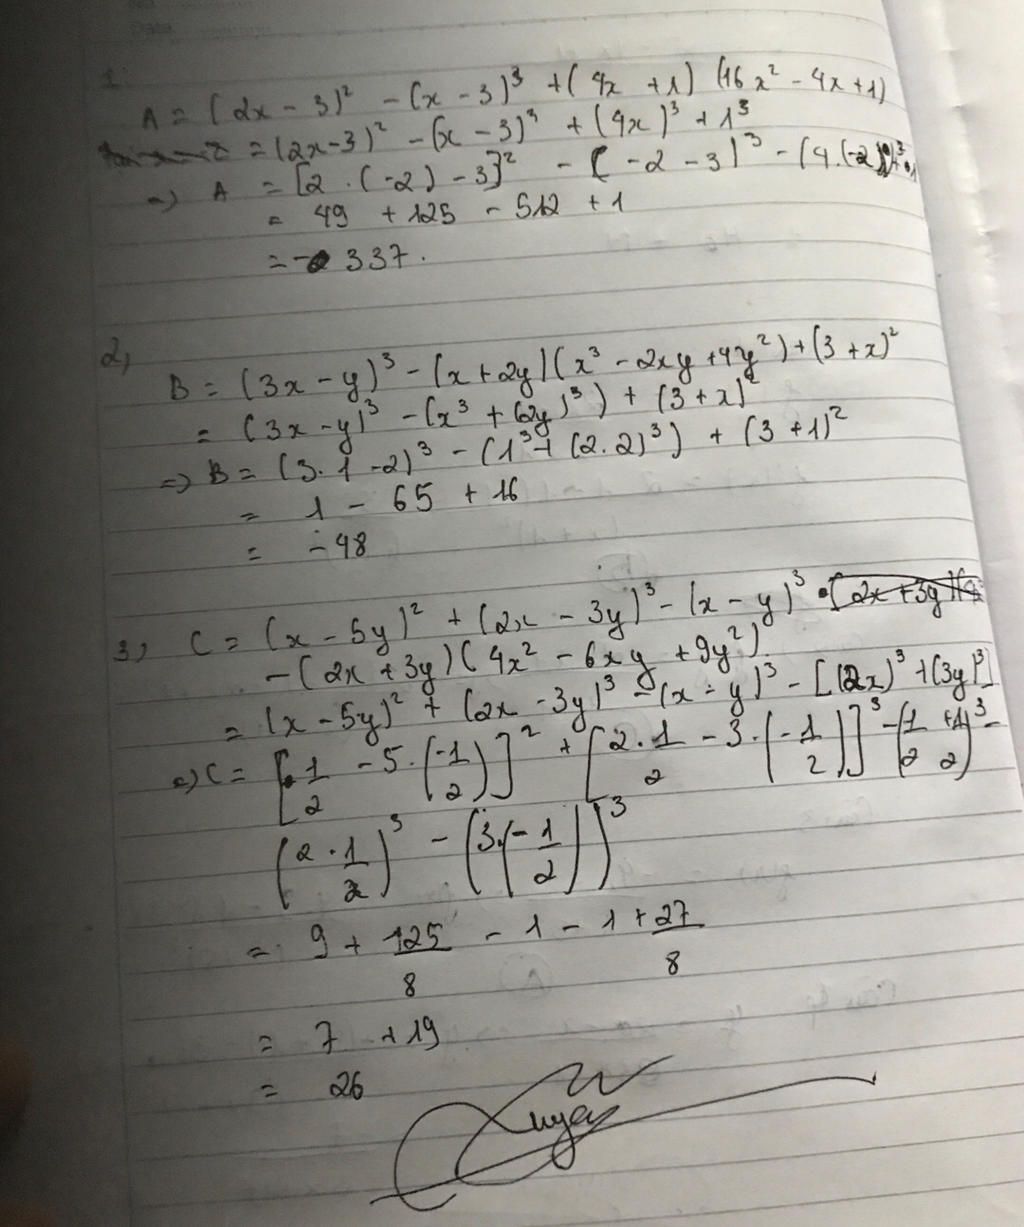 1.
A = (2x - 3)² - (x - 3)³ + (4x + 1) (16x² - 4x + 1)
= (2x - 3)² - (x - 3)³ + (4x)³ + 1³
=> A = [2 . (-2) - 3]² - ( -2 - 3)³ - (4.(-2))³ + 1
= 49 + 125 - 512 + 1
= - 337.
2,
B = (3x - y)³ - (x + 2y)(x³ - 2xy + 4y²) + (3 + x)²
= (3x - y)³ - (x³ + (2y)³) + (3 + x)²
=> B = (3. 1 - 2)³ - (1³ + (2.2)³) + (3 + 1)²
= 1 - 65 + 16
= - 48
3, C = (x - 5y)² + (2x - 3y)³ - (x - y)³
- (2x + 3y) (4x² - 6xy + 9y²).
= (x - 5y)² + (2x - 3y)³ - (x - y)³ - [(2x)³ + (3y)³]
=> C = [1/2 - 5.(-1/2)]² + [2.1/2 - 3.(-1/2)]³ - (1/2 + 1/2)³ -
(2 . 1/2)³ - (3.(-1/2))³
= 9 + 125/8 - 1 - 1 + 27/8
= 7 + 19
= 26